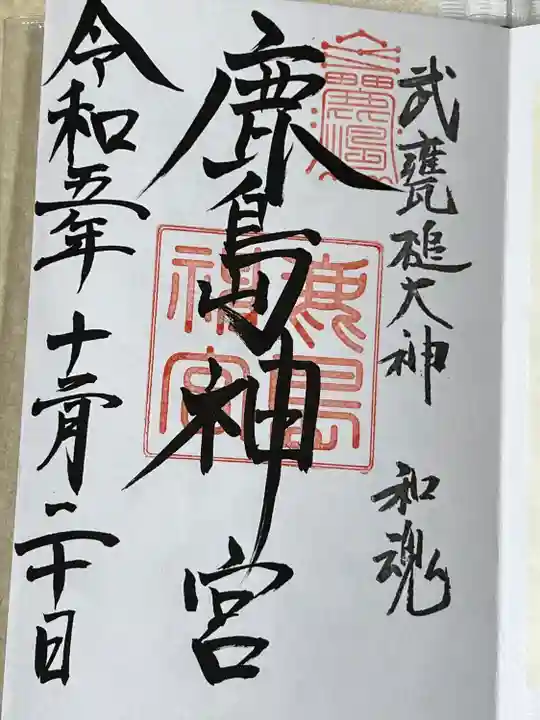 武甕槌大神 和魂
鹿島神宮
鹿島
神宮
令和五年 十二月二十日